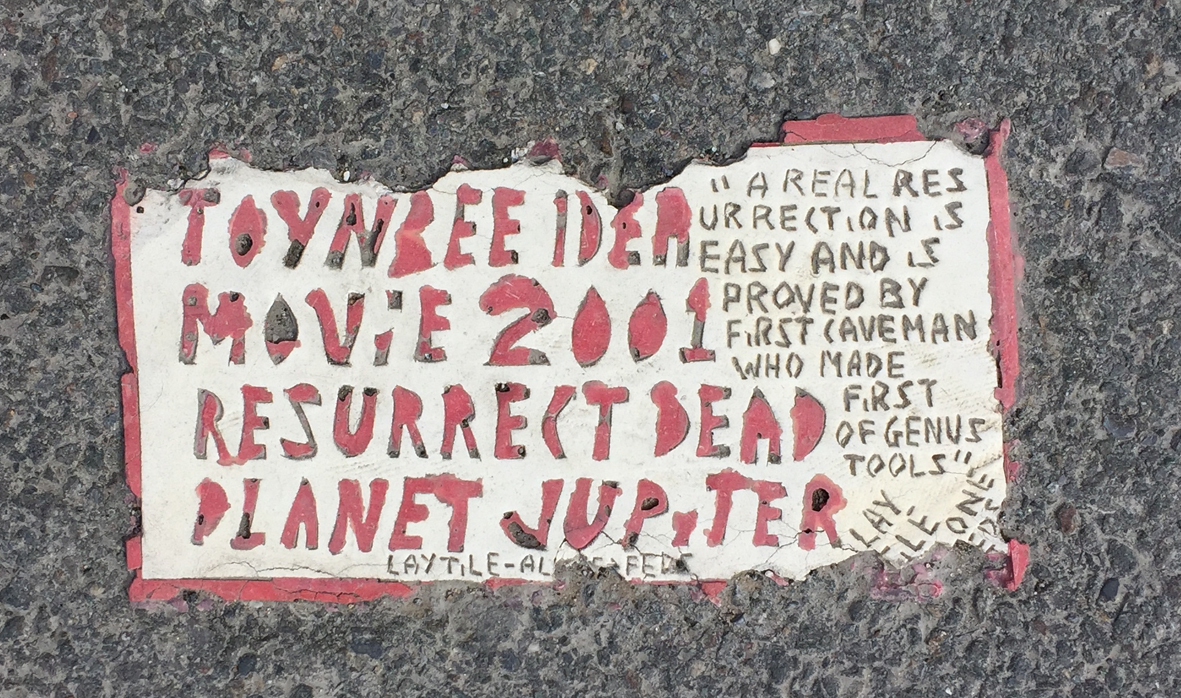 TOYNBEE IDEA
MOViE 2001
RESURRECT DEAD
PLANET JUPiTER
" A REAL RES
URRECTiON iS
EASY AND iS
PROVED BY
FiRST CAVEMAN
WHO MADE
FiRST
OF GENUS
TOOLS"
LAY
LAYTiLE-AL